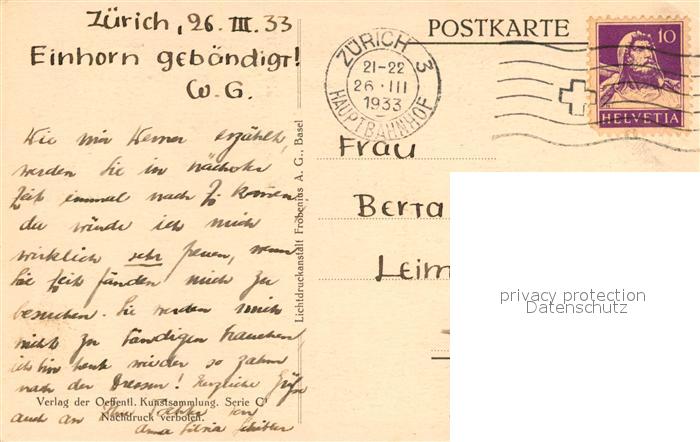 Zürich, 26. III. 33
Einhorn gebändigt!
W. G.
Wie mir Werner erzählt,
werden Sie in nächster
Zeit einmal nach Z. kommen,
da würde ich mich
wirklich sehr freuen, wenn
Sie Zeit fänden mich zu
besuchen. Sie werden mich
nicht zu bändigen brauchen,
ich bin heute wieder so zahm
nach der Dressur! Herzliche Grüße
auch an Ihre von
Anna
Verlag der Oeffentl. Kunstsammlung. Serie C
Nachdruck verboten.
Lichtdruckanstalt Frobenius A. G., Basel
POSTKARTE
ZÜRICH 3
21-22
26·III
1933
HAUPTBAHNHOF
10
HELVETIA
Frau
Berta
Leim
privacy protection
Datenschutz